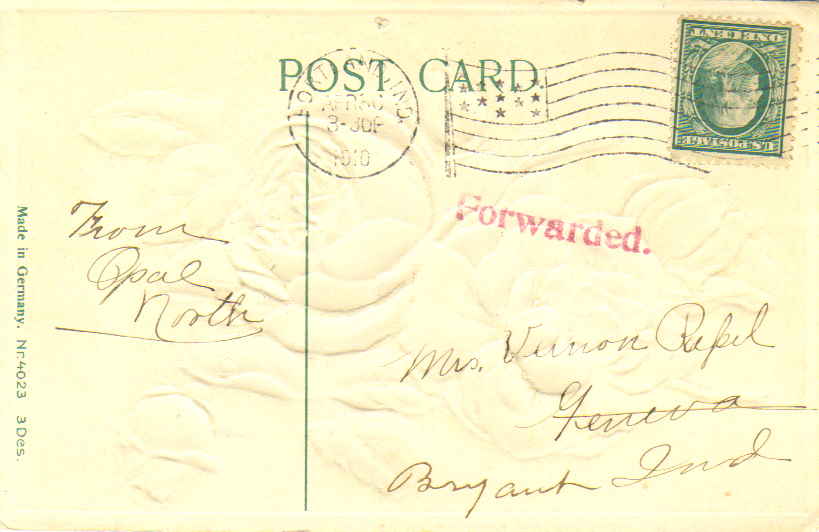 POST CARD.
IND.
APR 30
3-30P
1910
ONE CENT
U.S. POSTAGE
Forwarded.
From
Opal
North
Mrs. Vernon
Geneva
Bryant Ind
Made in Germany. Nr. 4023 3 Des.